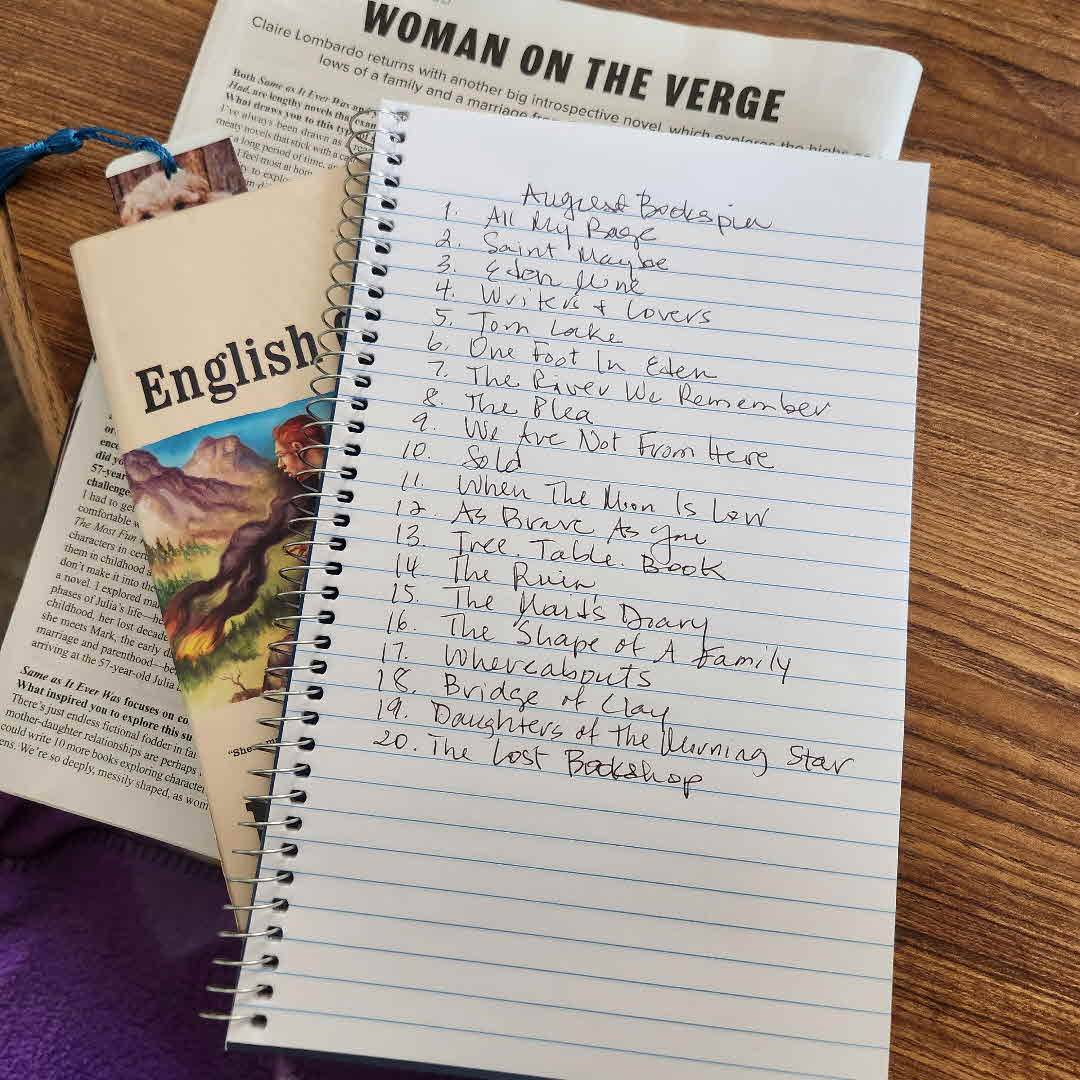 WOMAN ON THE VERGE
Claire Lombardo returns with another big introspective novel, which explores the highs
lows of a family and a marriage
Both Same as It Ever Was
Had, are lengthy novels that
What draws you to this
I've always been drawn
meaty novels that stick with
a long period of time,
I feel most at
to
English
ence
did
57-year
challenge
I had to get
comfortable
The Most Fun
characters in
them in childhood
don't make it into the
a novel. I explored
phases of Julia's life—
childhood, her lost decade
she meets Mark, the early
marriage and parenthood—
arriving at the 57-year-old Julia
Same as It Ever Was focuses on
What inspired you to explore this
There's just endless fictional fodder in
mother-daughter relationships are perhaps
could write 10 more books exploring
We're so deeply, messily shaped, as
"She
August Bookspin
1. All My Rage
2. Saint Maybe
3. Eden Mine
4. Writers & Lovers
5. Tom Lake
6. One Foot In Eden
7. The River We Remember
8. The Plea
9. We Are Not From Here
10. Sold
11. When The Moon Is Low
12. As Brave As You
13. Tree. Table. Book
14. The Ruin
15. The Maid's Diary
16. The Shape of A Family
17. Whereabouts
18. Bridge of Clay
19. Daughters of the Morning Star
20. The Lost Bookshop